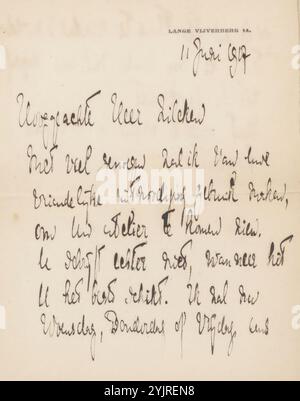 LANGE VIJVERBERG 14.
11 Juni 1907
Hooggeachte Heer Zilcken
Met veel genoegen zal ik van Uwe
vriendelijke uitnoodiging gebruik maken,
om Uw atelier te komen zien.
U schrijft echter niet, wanneer het
U het best schikt. Ik zal nu
Woensdag, Donderdag of Vrijdag eens
alamy
Image ID: 2YJREN8
www.alamy.com